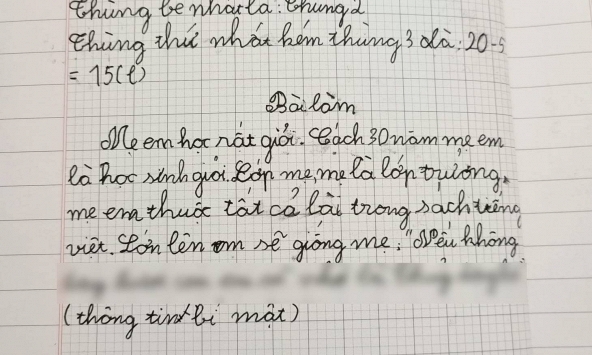 Thùng bé nhất là: thùng 2
Thùng thứ nhất kém thùng 3 là: 20-5
= 15(l)
Bài làm
Mẹ em học rất giỏi. Cách 30 năm mẹ em
là học sinh giỏi. Lớp mẹ, mẹ là lớp trưởng,
mẹ em thuộc tất cả bài trong sách tiếng
việt. Lớn lên em sẽ giống mẹ. "Nếu không
(thông tin bí mật)